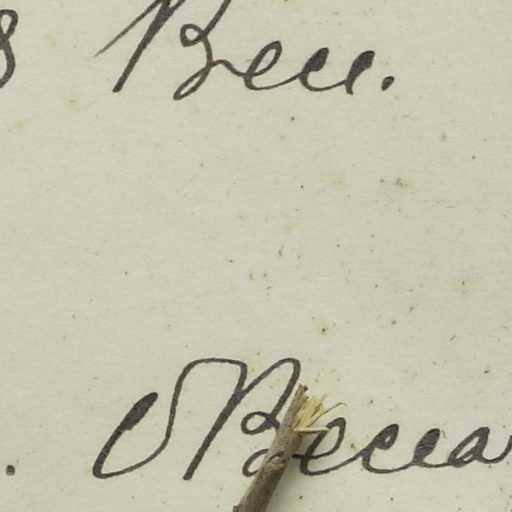 Becc.
Becca